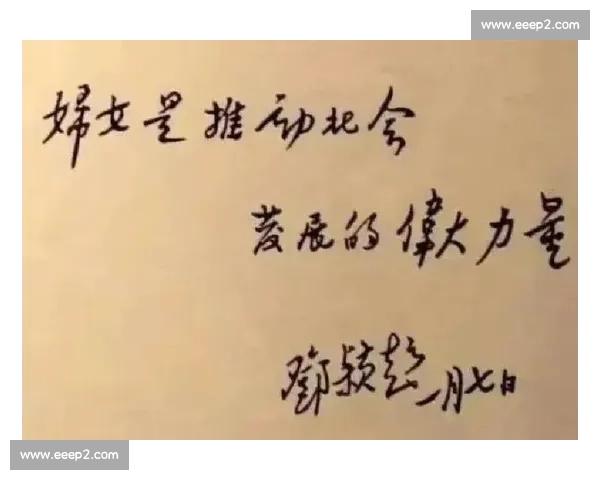 www.eeep2.com
婦女是推动社会
發展的偉大力量
鄧颖超 一月七日
www.eeep2.com